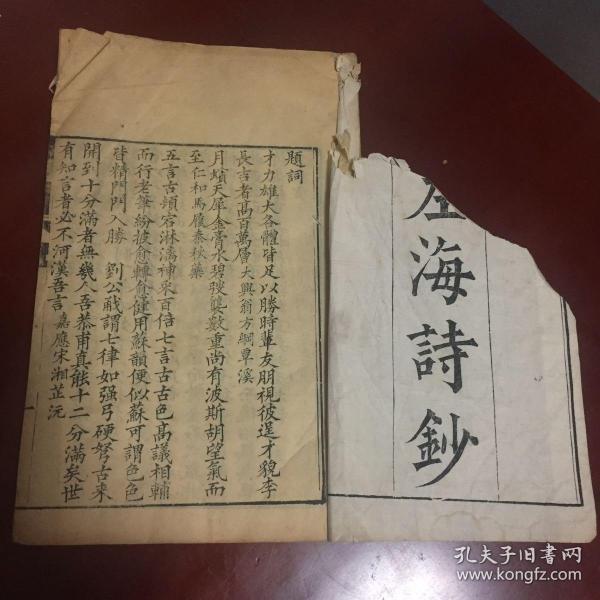 左海詩鈔
題詞
才力雄大各體皆足以勝時輩友朋視彼逞才貌李
長吉者高百萬層大興翁方綱覃溪
月蝕天犀金膏水碧㻞襲數重尚有波斯胡望氣而
至仁和馬履泰秋藥
五言古頰宕淋漓神采百倍七言古古色高議相輔
而行老筆紛披愈轉愈健用蘇韻便似蘇可謂色色
皆精門門入勝 劉公戢謂七律如强弓硬弩古来
開到十分滿者無幾人吾恭甫真能十二分滿矣世
有知言者必不河漢吾言嘉應宋湘芷沅
一
孔夫子旧書网
www.kongfz.com